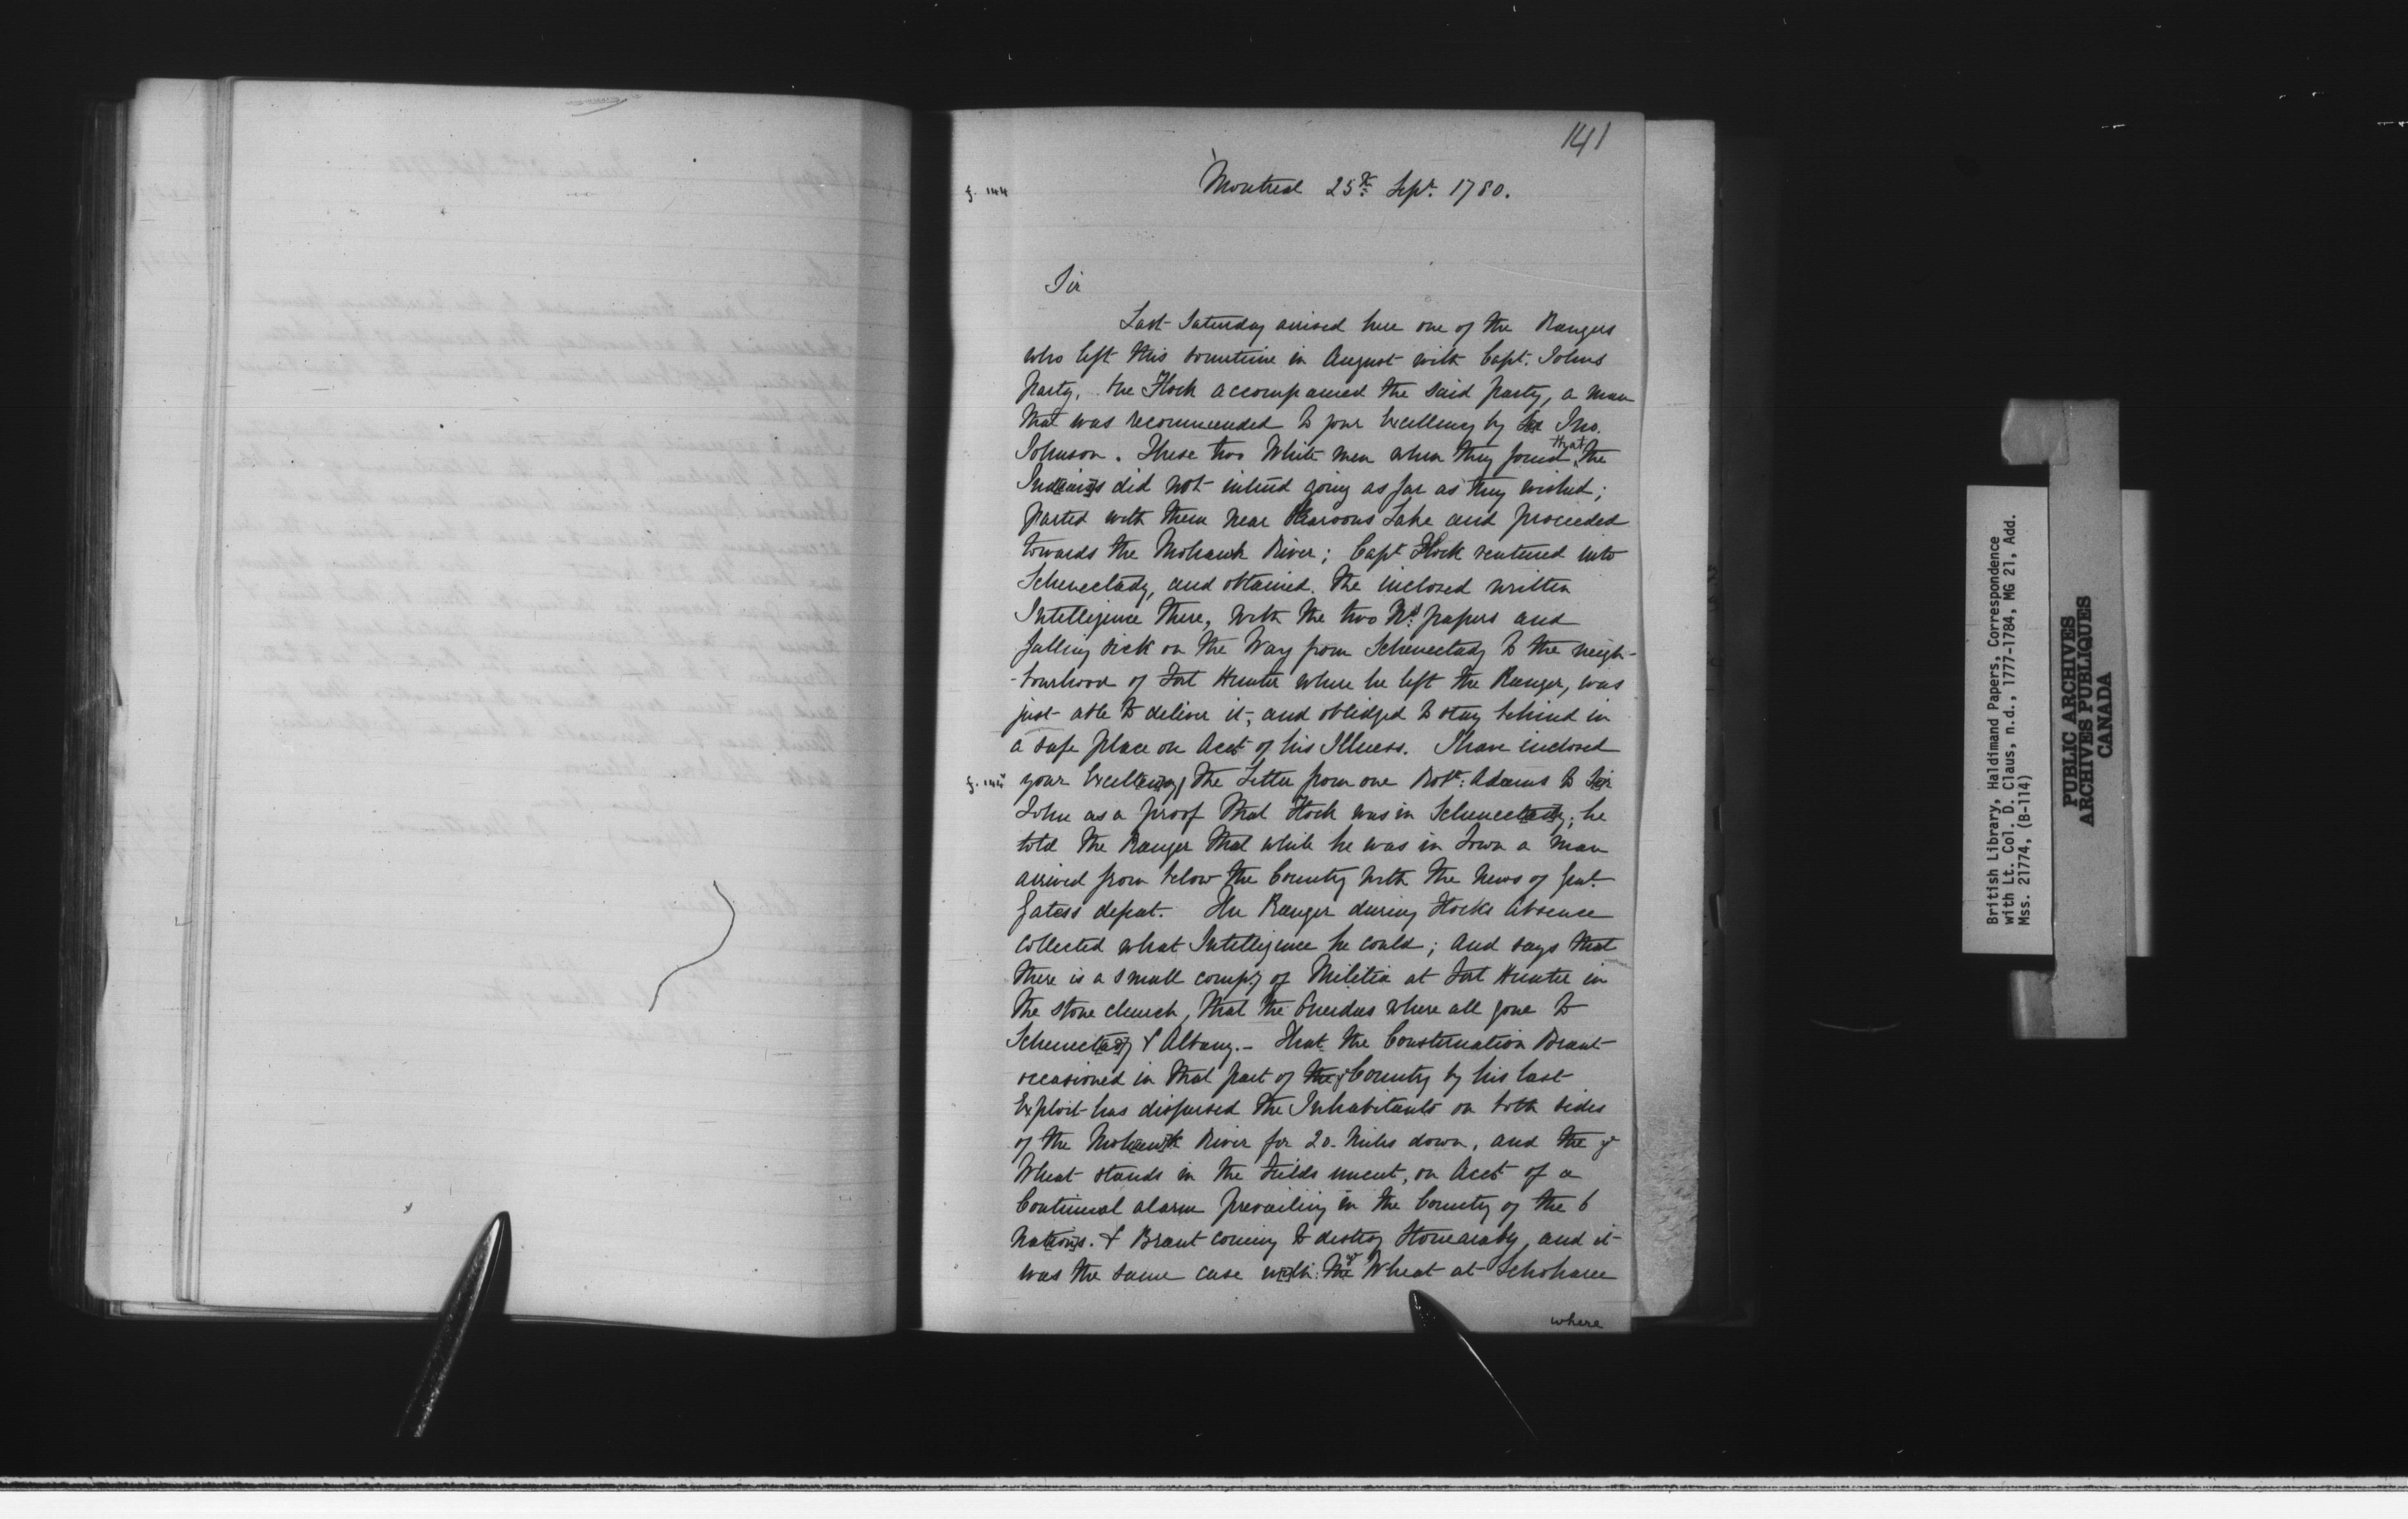 141
f. 144
Montreal 25th Sept. 1780.
Sir
Last Saturday arrived here one of the Rangers
who left this sometime in August with Capt. Johns
party, the Hock accompanied the said party, a man
that was recommended to your Excellency by Sir Jno.
Johnson. These two White men when they found that the
Indians did not intend going as far as they wished;
parted with them near Scaroons Lake and proceeded
towards the Mohawk River; Capt Hock ventured into
Schenectady, and obtained. the inclosed written
Intelligence there, with the two papers and
falling sick on the Way from Schenectady to the neigh-
-bourhood of Fort Hunter where he left the Ranger, was
just able to deliver it, and oblidged to stay behind in
a safe place on Acct of his Illness. I have inclosed
f. 144
your Excellency the Letter from one Robt: Adams to Sir
John as a proof that Hock was in Schenectady; he
told the Ranger that while he was in Town a man
arrived from below the Country with the News of Genl.
Gates's defeat. The Ranger during Hocks absence
collected what Intelligence he could; and says that
there is a small compy of Militia at Fort Hunter in
the stone church, that the Oneidas where all gone to
Schenectady & Albany. - That the Consternation Brant
occasioned in that part of the Country by his last
Exploit has dispersed the Inhabitants on both sides
of the Mohawk River for 20. Miles down, and the
Wheat stands in the Fields uncut, on Acct of a
Continual alarm prevailing in the Country of the 6
Nations. & Brant coming to destroy Stonearaby, and it
was the same case with the Wheat at Schoharee
where
British Library, Haldimand Papers, Correspondence
with Lt. Col. D. Claus, n.d., 1777-1784, MG 21, Add.
Mss. 21774, (B-114)
PUBLIC ARCHIVES
ARCHIVES PUBLIQUES
CANADA